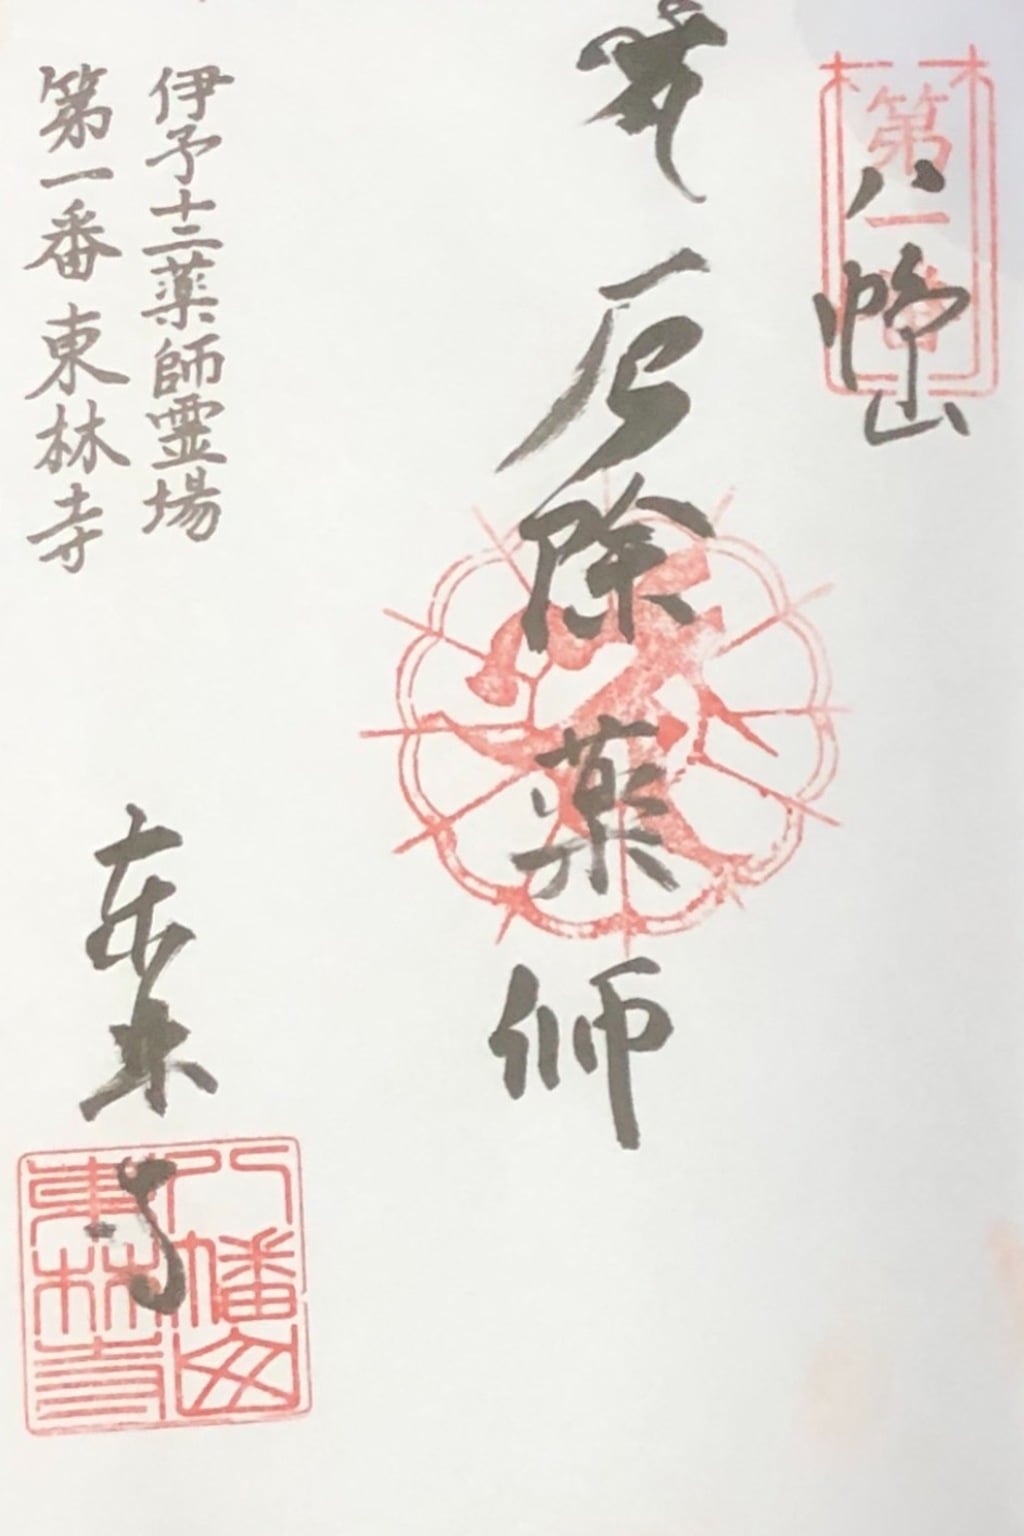 第一番
八幡山
奉
厄除薬師
伊予十二薬師霊場
第一番東林寺
東林寺
八幡山
東林寺